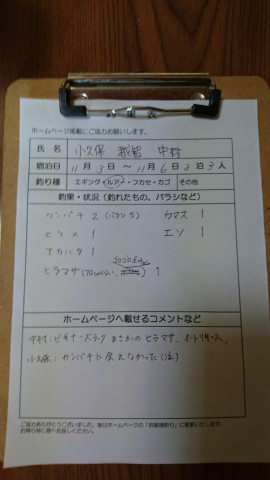 ホームページ掲載にご協力お願いします。
氏 名 小久保 中村
宿泊日 11月3日～11月6日3泊3人
釣り種 エギング・ルアー・フカセ・カゴ その他
釣果・状況(釣れたもの、バラシなど)
カンパチ 2 (バラシ5) カマス 1
ヒラメ 1 エソ 1
アカハタ 1
ヒラマサ (70cmくらい、 1
ホームページへ載せるコメントなど
中村:ビギナーズラック まさかの ヒラマサ、オートリリース、
小久保:カンパチに会えなかった(泣)
ご協力ありがとうございました。後日ホームページの「お客様釣り」に更新いたします。
お帰り時に是へお返しください。